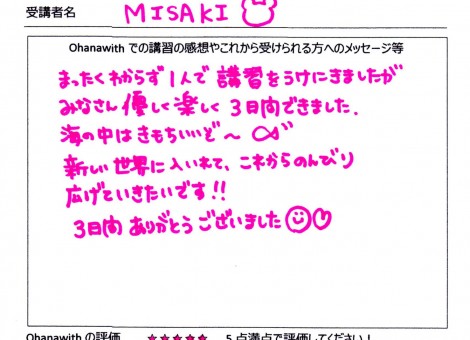 受講者名 MISAKI
Ohanawith での講習の感想やこれから受けられる方へのメッセージ等
まったくわからず1人で講習をうけにきましたが
みなさん優しく楽しく3日間できました.
海の中はきもちいいど〜
新しい世界に入いれて、これからのんびり
広げていきたいです!!
3日間ありがとうございました
Ohanawith の評価 ★★★★★ 5点満点で評価してください!